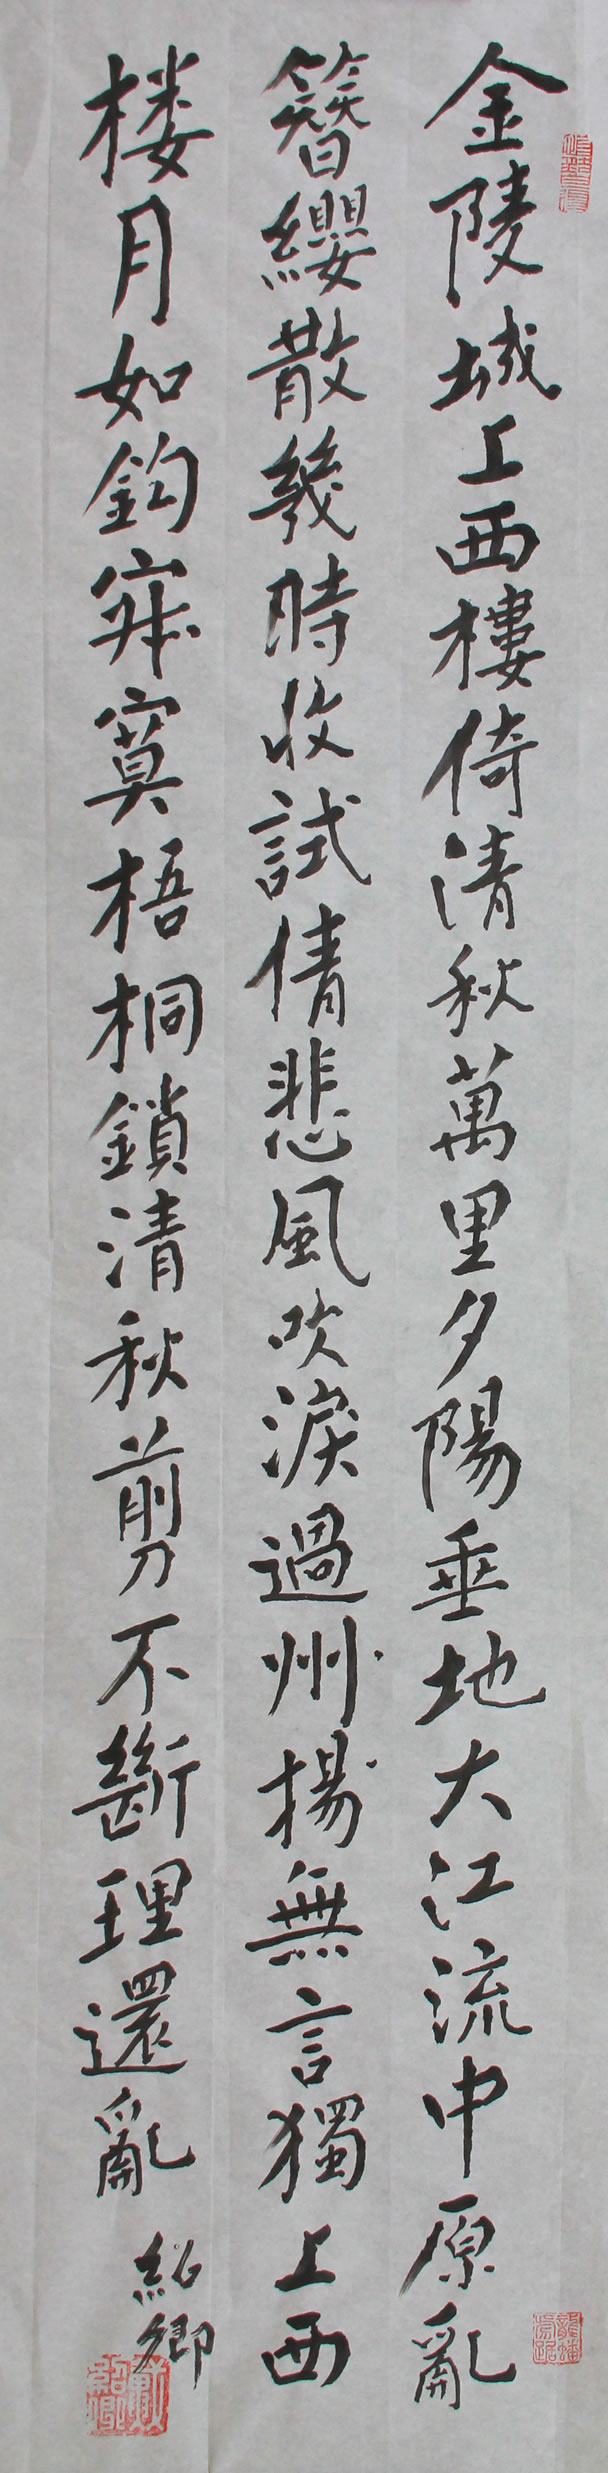 金陵城上西樓倚清秋萬里夕陽垂地大江流中原亂
簪纓散幾時收試倩悲風吹淚過州揚無言獨上西
楼月如鈎寂寞梧桐鎖清秋剪不斷理還亂
紹卿